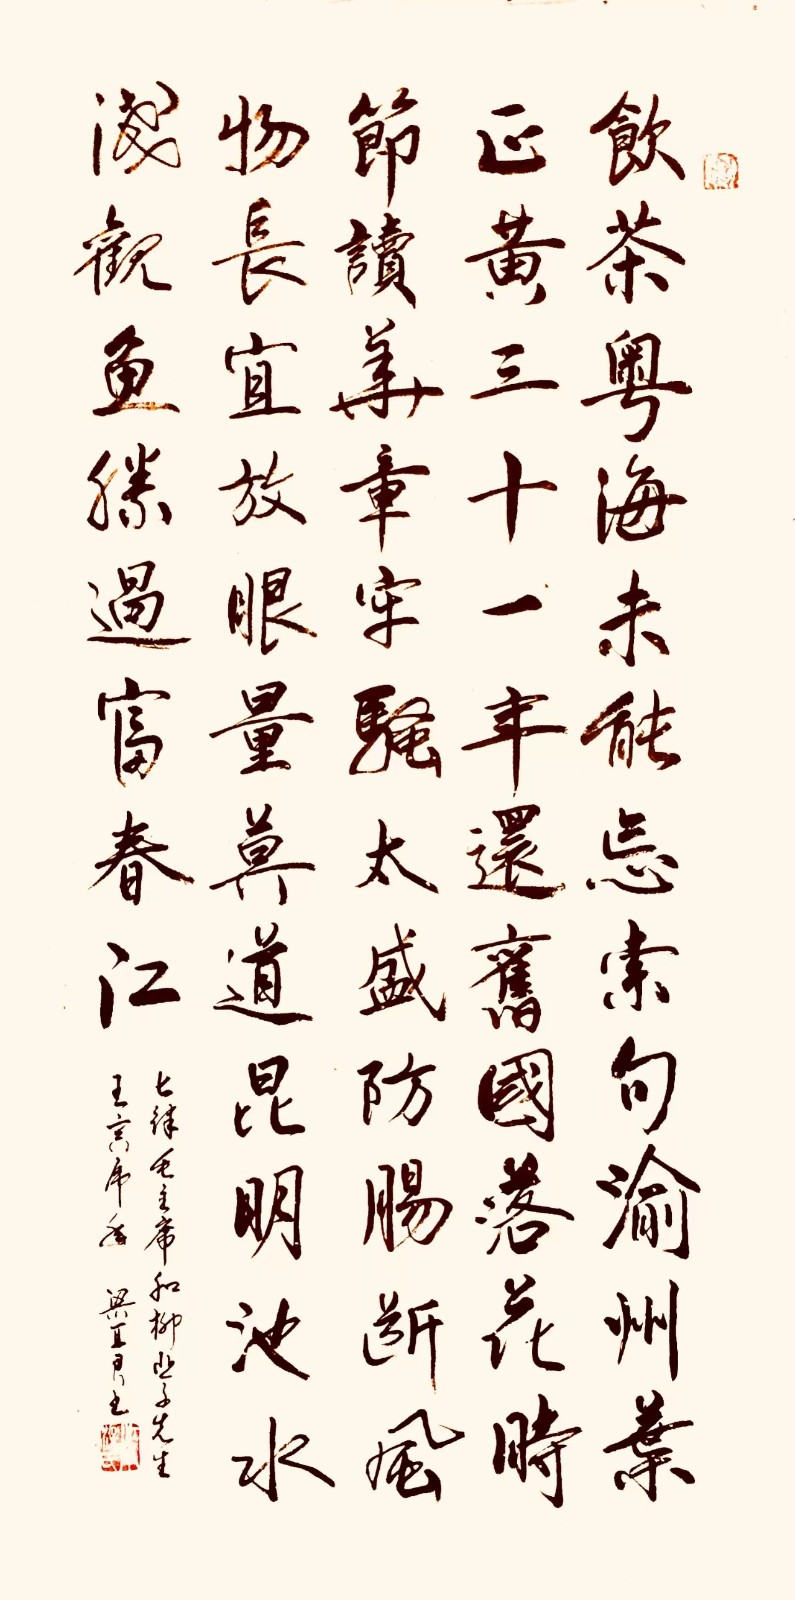 飲茶粵海未能忘索句渝州葉
正黃三十一年還舊國落花時
節讀華章牢騷太盛防腸斷風
物長宜放眼量莫道昆明池水
淺觀魚勝過富春江
七律毛主席和柳亞子先生
壬寅虎年 梁正君书